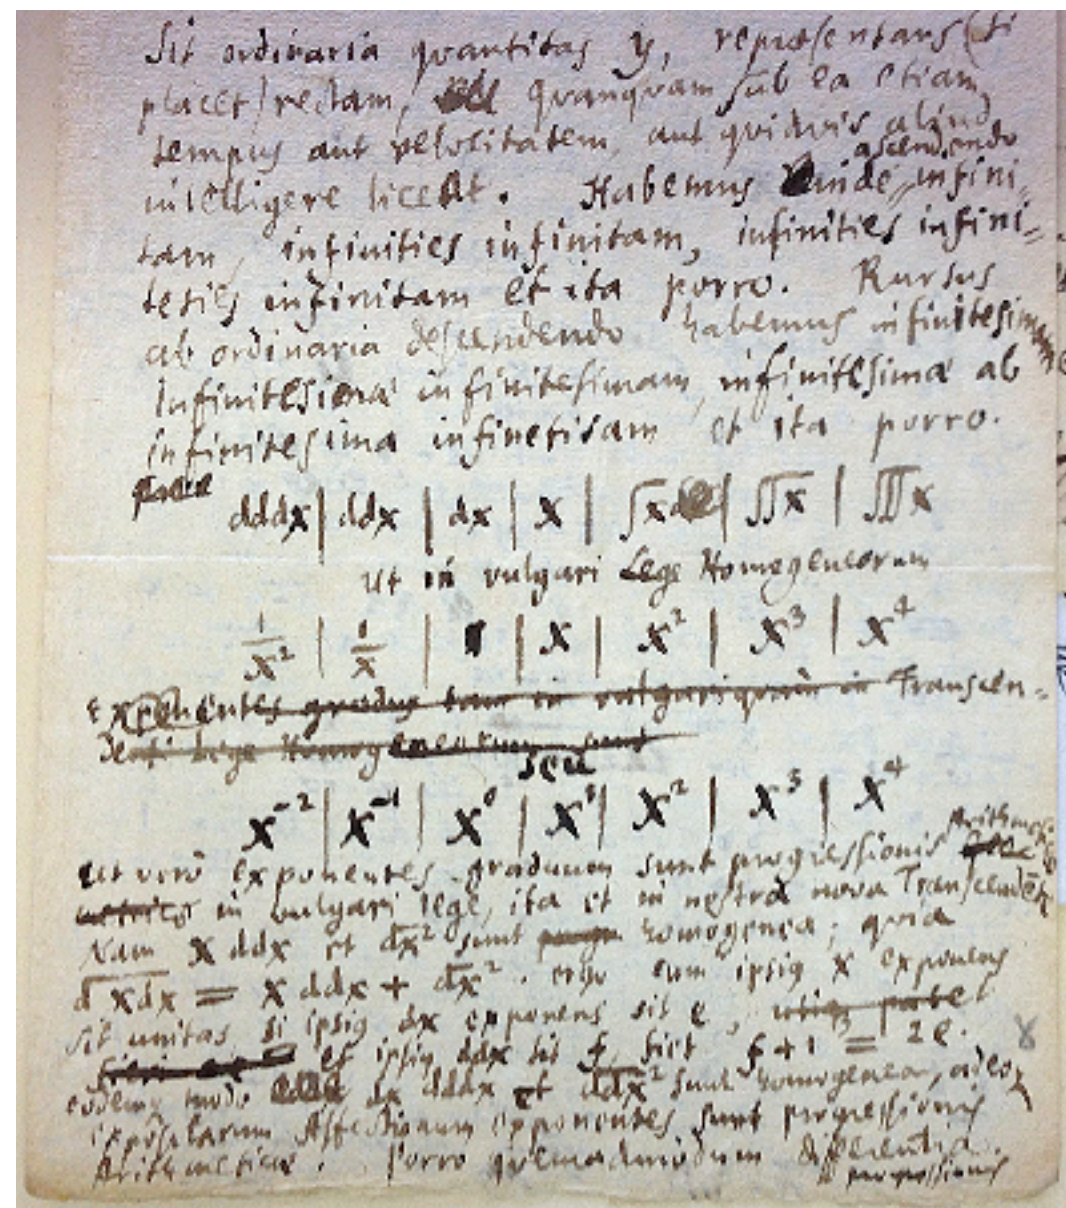 Sit ordinaria quantitas y, repræsentans (si
placet) rectam, quanquam sub ea etiam
tempus aut velocitatem, aut quidvis aliud
ascendendo
intelligere liceat. Habemus inde infini-
tam, infinities infinitam, infinities infini-
ties infinitam et ita porro. Rursus
ab ordinaria descendendo habemus infinitesimam
infinitesimæ infinitesimam, infinitesimæ ab
infinitesima infinetisam et ita porro.
dddx | ddx | dx | x | ∫x | ∫∫x | ∫∫∫x
ut in vulgari Lege Homogeneorum
1/x² | 1/x | 1 | x | x² | x³ | x⁴
Exponentes gradus tam in vulgari quam in Transcen-
denti Lege Homogeneorum sunt
seu
x⁻² | x⁻¹ | x⁰ | x¹ | x² | x³ | x⁴
Arithmeticæ
Ut verò exponentes graduum sunt progressionis
in vulgari lege, ita et in nostra nova Transcendente
Nam x ddx et dx² sunt homogenea; quia
d xdx = x ddx + dx². ergo cum ipsius x exponens
sit unitas si ipsius dx exponens sit e, utique patet
et ipsius ddx sit f, fiet f + 1 = 2e.
eodemque modo dx dddx et ddx² sunt homogenea, adeoque
Affectionum exponentes sunt progressionis
Arithmeticæ. Porro quemadmodum differentia
progressionis